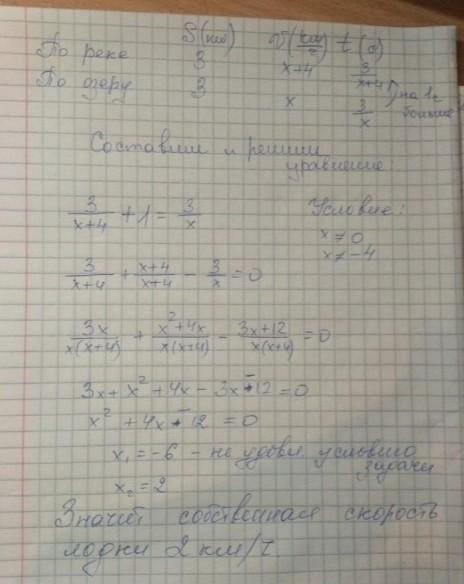 S(км) v(км/ч) t(ч)
По реке 3 x+4 3/(x+4)
По озеру 3 x 3/x на 1ч больше
Составим и решим
уравнение:
3/(x+4) + 1 = 3/x Условие:
x ≠ 0
x ≠ -4
3/(x+4) + (x+4)/(x+4) - 3/x = 0
3x/(x(x+4)) + (x²+4x)/(x(x+4)) - (3x+12)/(x(x+4)) = 0
3x + x² + 4x - 3x - 12 = 0
x² + 4x - 12 = 0
x₁ = -6 - не удовл. условию
задачи
x₂ = 2
Значит собственная скорость
лодки 2 км/ч.